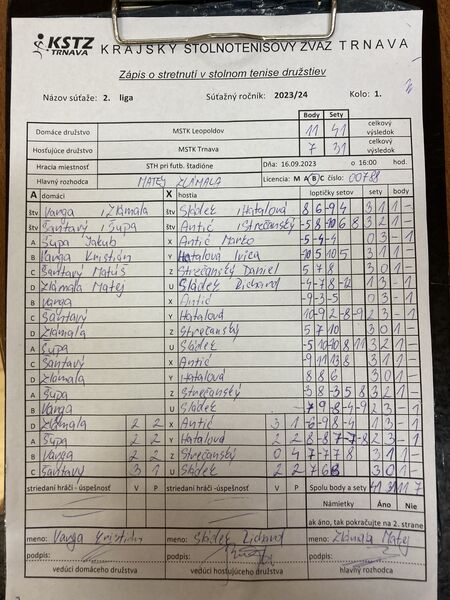 KSTZ TRNAVA KRAJSKÝ STOLNOTENISOVÝ ZVÄZ TRNAVA
Zápis o stretnutí v stolnom tenise družstiev
Názov súťaže: 2. liga Súťažný ročník: 2023/24 Kolo: 1.
Body Sety
Domáce družstvo MSTK Leopoldov 11 41 celkový výsledok
Hosťujúce družstvo MSTK Trnava 7 31 celkový výsledok
Hracia miestnosť STH pri futb. štadióne Dňa: 16.09.2023 o 16:00 hod.
Hlavný rozhodca MATEJ ZLÁMALA Licencia: M A B C číslo: 00788
A domáci X hostia loptičky setov sety body
štv Vanga , Zlámala štv Sládek , Hatalová 8 6 -9 4 3 1 1 -
štv Šantavý , Šupa štv Antič , Strečanský -5 8 -10 6 8 3 2 1 -
A Šupa Jakub X Antič Marko -5 -4 -4 0 3 - 1
B Vanga Kristián Y Hatalová Ivica -10 5 10 5 3 1 1 -
C Šantavý Matúš Z Strečanský Daniel 5 7 8 3 0 1 -
D Zlámala Matej U Sládek Richard -4 -7 8 -12 1 3 - 1
B Vanga X Antič -9 -3 -5 0 3 - 1
C Šantavý Y Hatalová 10 -9 2 -8 -9 2 3 - 1
D Zlámala Z Strečanský 5 7 10 3 0 1 -
A Šupa U Sládek -5 10 -10 8 11 3 2 1 -
C Šantavý X Antič -9 11 13 8 3 1 1 -
D Zlámala Y Hatalová 8 8 6 3 0 1 -
A Šupa Z Strečanský -3 8 -3 5 8 3 2 1 -
B Vanga U Sládek -7 9 -8 4 -9 2 3 - 1
D Zlámala 2 2 X Antič 3 1 -6 -9 8 -4 1 3 - 1
A Šupa 2 2 Y Hatalová 2 2 8 8 -7 -7 -8 2 3 - 1
B Vanga 2 2 Z Strečanský 0 4 7 -7 7 8 3 1 1 -
C Šantavý 3 1 U Sládek 2 2 7 6 8 3 0 1 -
striedaní hráči - úspešnosť V P striedaní hráči - úspešnosť V P Spolu body a sety 41 31 11 7
Námietky Áno Nie
ak áno, tak pokračujte na 2. strane
meno: Vanga Kristián meno: Sládek Richard meno: Zlámala Matej
podpis: podpis: podpis:
vedúci domáceho družstva vedúci hosťujúceho družstva hlavný rozhodca